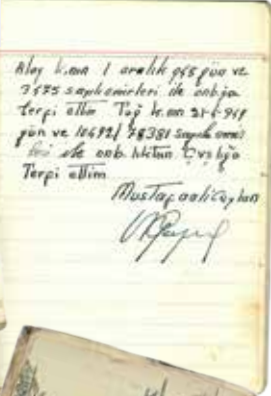 Alay k.nın 1 aralık 958 gün ve
3575 sayılı emirleri ile onb.lığa
terfi ettim Tuğ k.nın 31-5-959
gün ve 10692/78381 sayılı emir
leri ile onb. lıktan Çvşlığa
Terfi ettim
Mustafa ali Ceylan